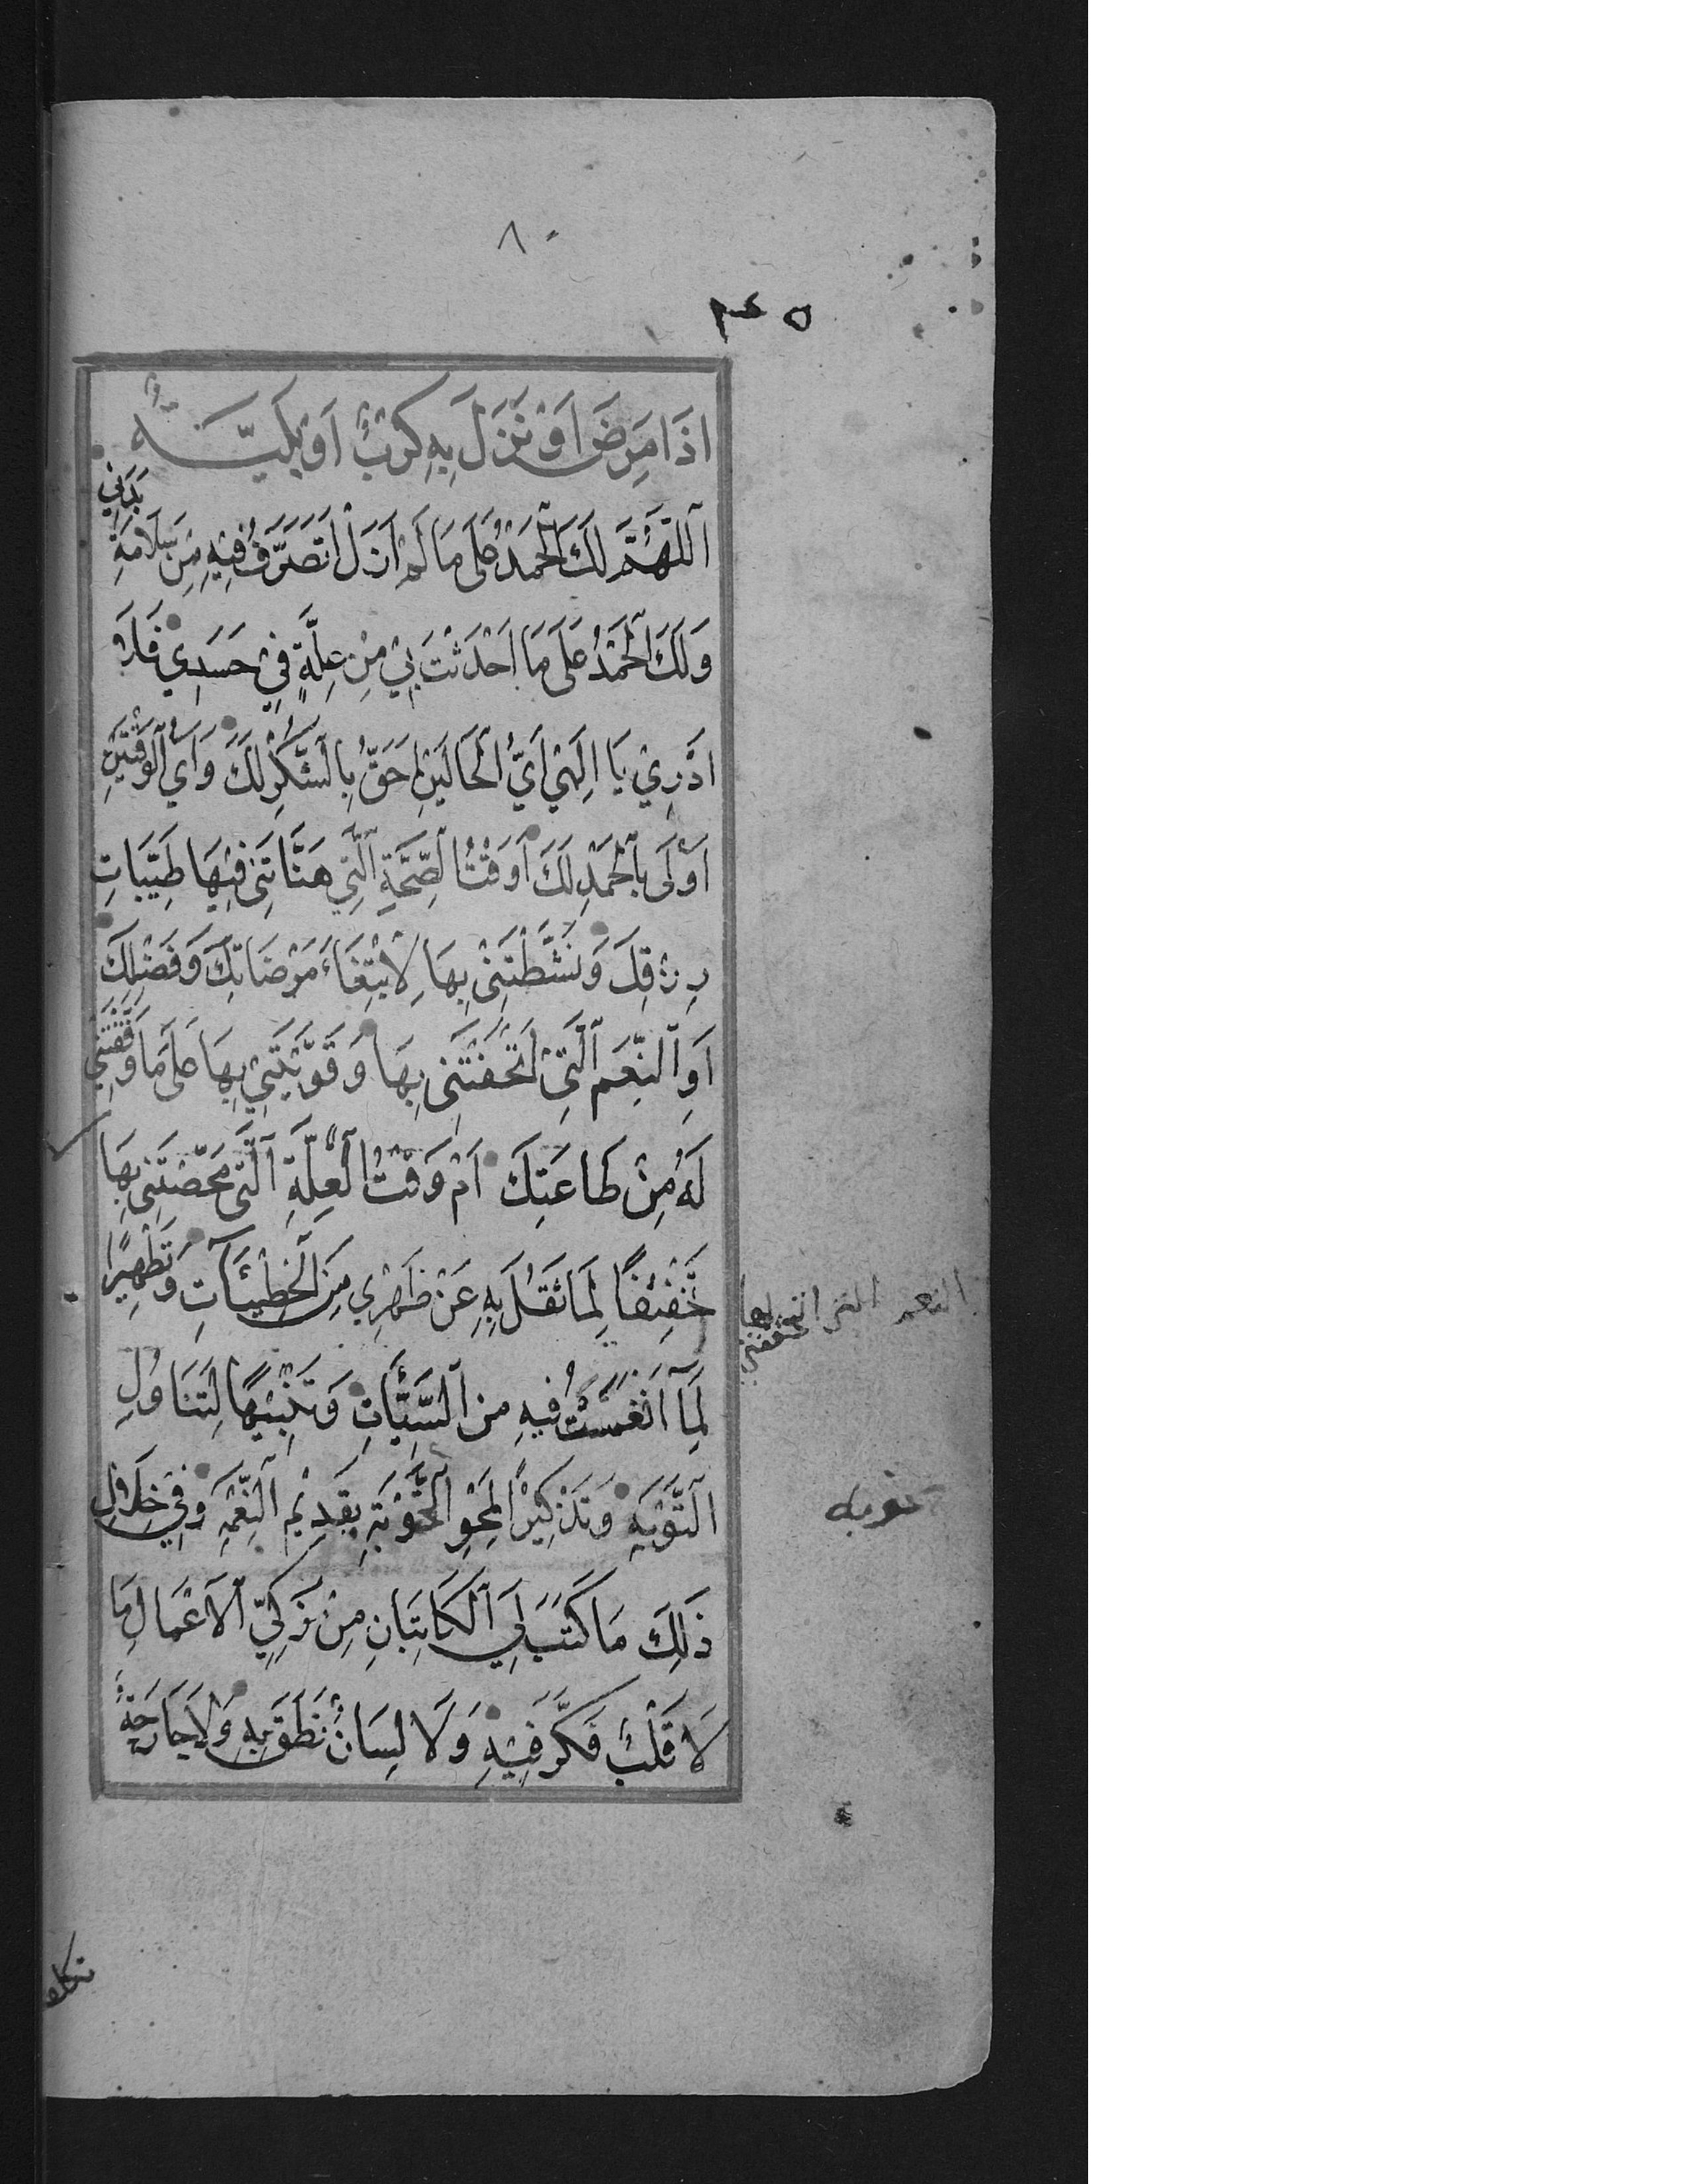 ٨٠
اِذَا مَرِضَ اَوْ نَزَلَ بِهِ كَرْبٌ اَوْ بَلِيَّةٌ
اَللّٰهُمَّ لَكَ الْحَمْدُ عَلَى مَا لَمْ اَزَلْ اَتَصَرَّفُ فِيْهِ مِنْ سَلَامَةِ بَدَنِي
وَلَكَ الْحَمْدُ عَلَى مَا اَحْدَثْتَ بِيْ مِنْ عِلَّةٍ فِيْ جَسَدِيْ فَمَا
اَدْرِيْ يَا اِلٰهِيْ اَيُّ الْحَالَيْنِ اَحَقُّ بِالشُّكْرِ لَكَ وَاَيُّ الْوَقْتَيْنِ
اَوْلَى بِالْحَمْدِ لَكَ اَوَقْتُ الصِّحَّةِ الَّتِي هَنَّاتَنِىْ فِيْهَا طَيِّبَاتِ
رِزْقِكَ وَنَشَّطْتَنِىْ بِهَا لِابْتِغَاءِ مَرْضَاتِكَ وَفَضْلِكَ
اَوِ النِّعَمِ الَّتِىْ اَتْحَفْتَنِى بِهَا وَقَوَّيْتَنِيْ بِهَا عَلَى مَا وَفَّقْتَنِي
لَهُ مِنْ طَاعَتِكَ اَمْ وَقْتُ الْعِلَّةِ الَّتِى مَحَّصْتَنِى بِهَا
تَخْفِيْفًا لِمَا ثَقُلَ بِهِ عَنْ ظَهْرِي مِنَ الْخَطِيْئَاتِ وَتَطْهِيْرًا
لِمَا انْغَمَسْتُ فِيهِ مِنَ السَّيِّئَاتِ وَتَنْبِيْهًا لِتَنَاوُلِ
التَّوْبَةِ وَتَذْكِيْرًا لِمَحْوِ الْحَوْبَةِ بِقَدِيْمِ النِّعْمَةِ وَفِيْ خِلَالِ
ذٰلِكَ مَا كَتَبَ لِيَ الْكَاتِبَانِ مِنْ زَكِيِّ الْاَعْمَالِ مَا
لَا قَلْبٌ فَكَّرَ فِيْهِ وَلَا لِسَانٌ نَطَقَ بِهِ وَلَا جَارِحَةٌ